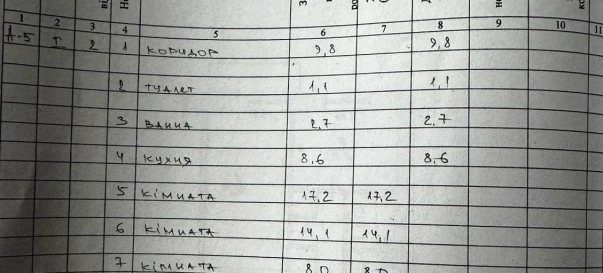 1 2 3 4 5 6 7 8 9 10 11
А-5 I 2 1 коридор 9,8 9,8
2 туалет 1,1 1,1
3 ванна 2,7 2,7
4 кухня 8,6 8,6
5 кімната 17,2 17,2
6 кімната 14,1 14,1
7 кімната